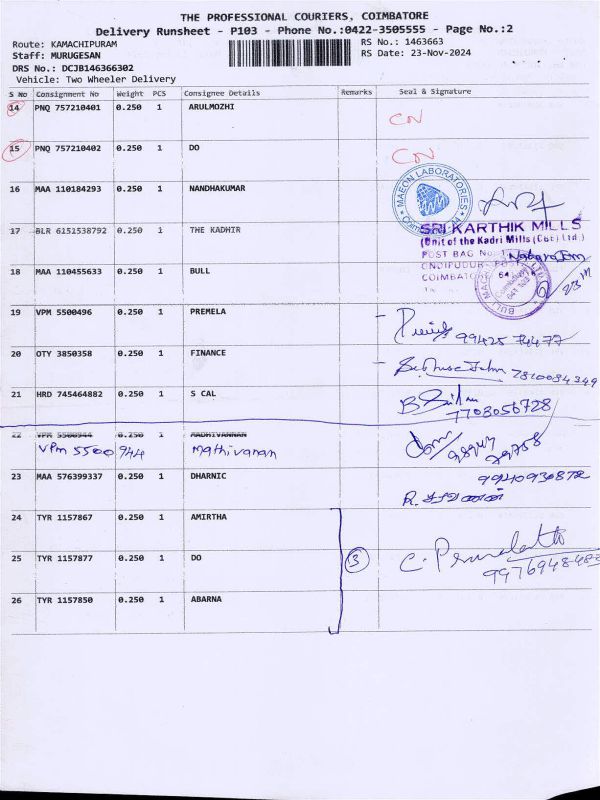 THE PROFESSIONAL COURIERS, COIMBATORE
Delivery Runsheet - P103 - Phone No.:0422-3505555 - Page No.:2
Route: KAMACHIPURAM
Staff: MURUGESAN
DRS No.: DCJB146366302
Vehicle: Two Wheeler Delivery
RS No.: 1463663
RS Date: 23-Nov-2024
S No Consignment No Weight PCS Consignee Details Remarks Seal & Signature
14 PNQ 757210401 0.250 1 ARULMOZHI CN
15 PNQ 757210402 0.250 1 DO CN
16 MAA 110184293 0.250 1 NANDHAKUMAR
MAEON LABORATORIES
17 BLR 6151538792 0.250 1 THE KADHIR
SRI KARTHIK MILLS
(Unit of the Kadri Mills (Cbe) Ltd.)
POST BAG No.
18 MAA 110455633 0.250 1 BULL
19 VPM 5500496 0.250 1 PREMELA
99425 74477
20 OTY 3850358 0.250 1 FINANCE
7810084349
21 HRD 745464882 0.250 1 S CAL
7703056728
22 VPM 5500944 0.250 1 MADHIVANNAN
VPM 5500944 Mathivanan
23 MAA 576399337 0.250 1 DHARNIC
9940930872
24 TYR 1157867 0.250 1 AMIRTHA
25 TYR 1157877 0.250 1 DO 3
26 TYR 1157850 0.250 1 ABARNA